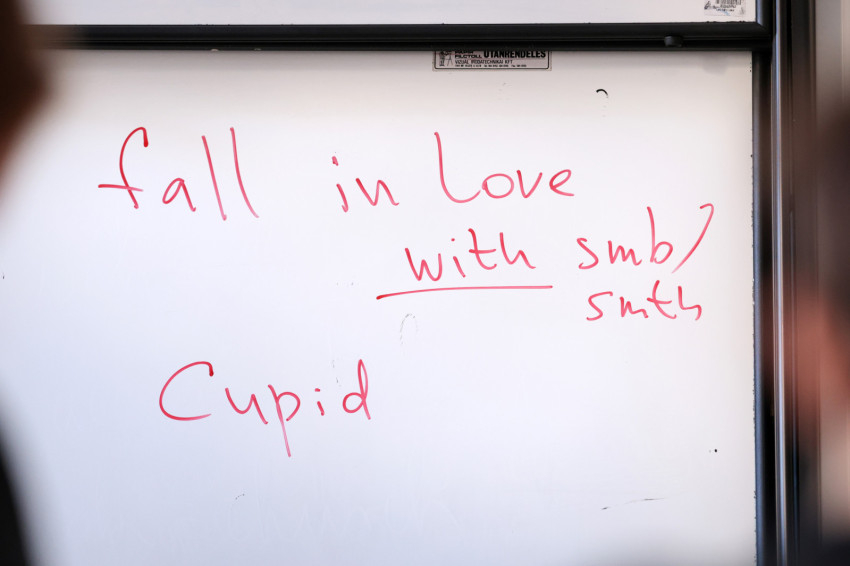 UTÁNRENDELÉS
VIZUÁL IRODATECHNIKAI KFT
fall in love
with smb/
smth
Cupid